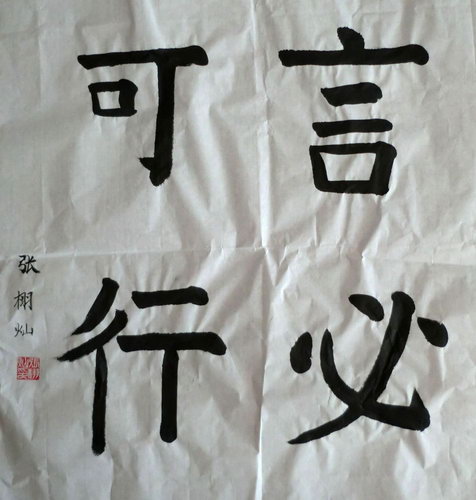 言必
可行
张栩灿